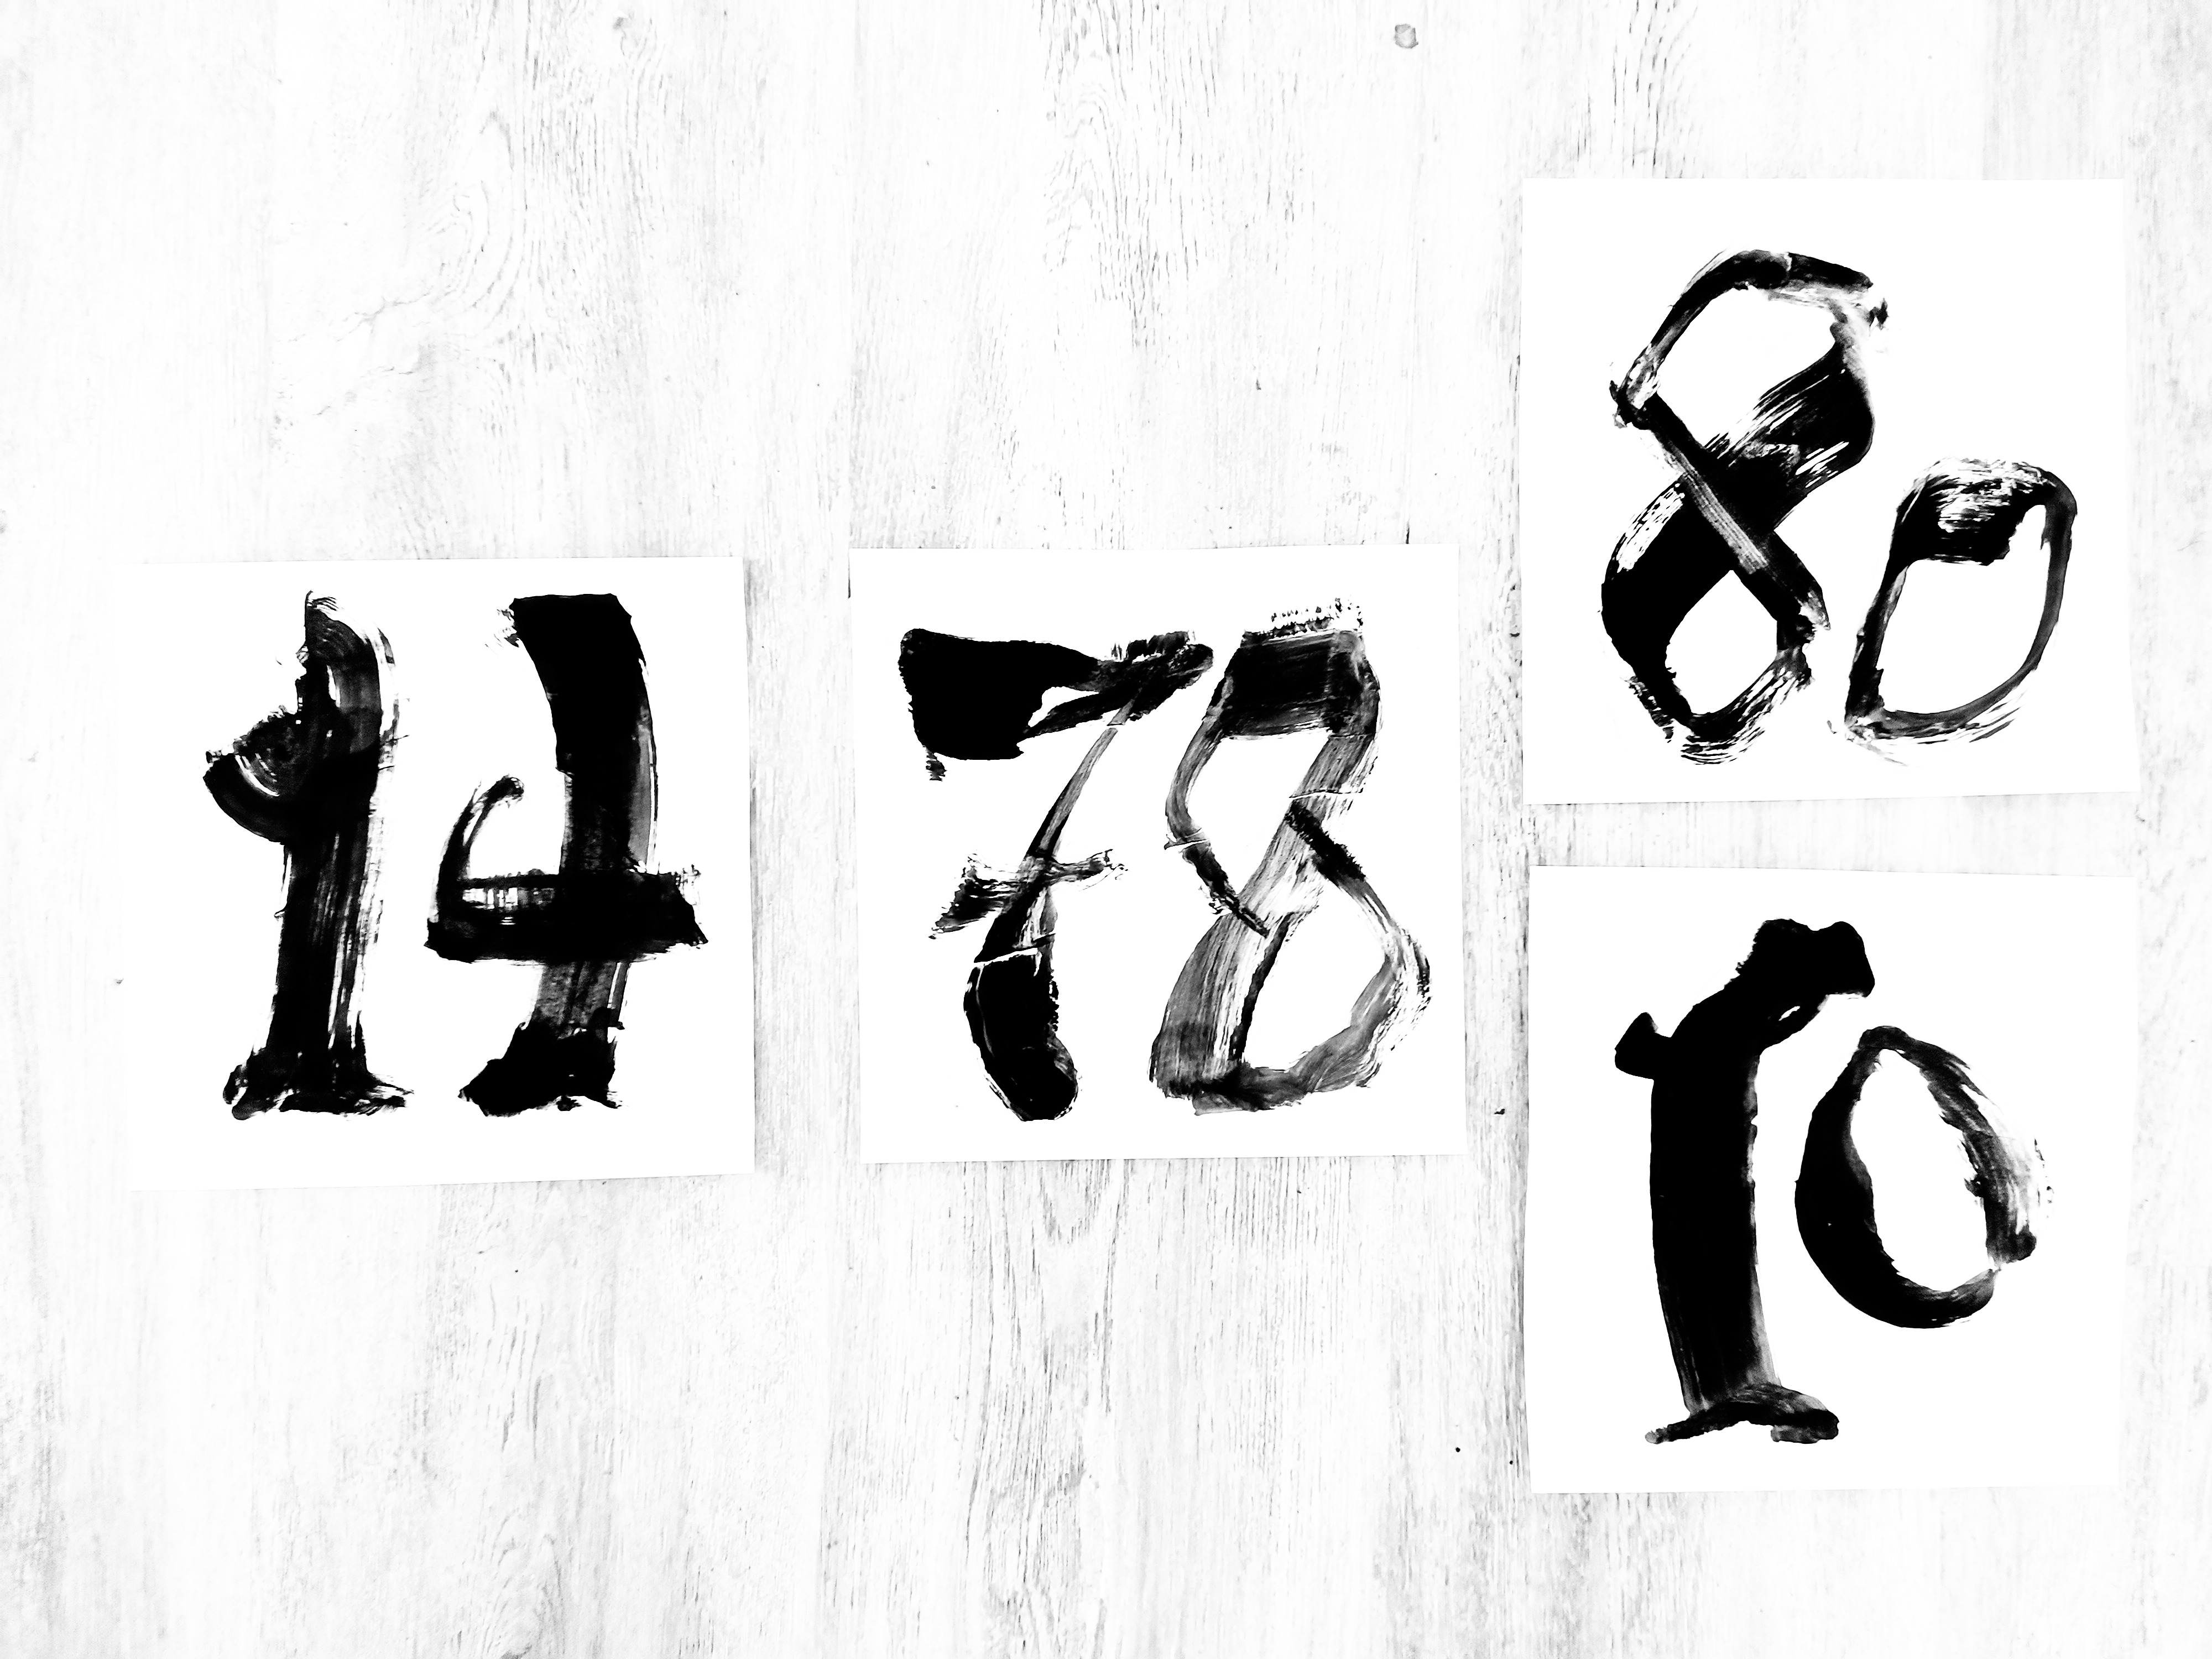 14
78
80
10